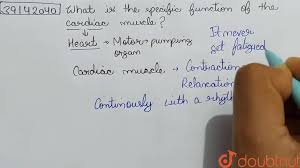 39142040 What is the specific function of the
cardiac muscle?
Heart → Motor pumping
organ
It never
get fatigued
Cardiac muscle → Contraction
Relaxation
Continuously with a rhyt
doubtnut